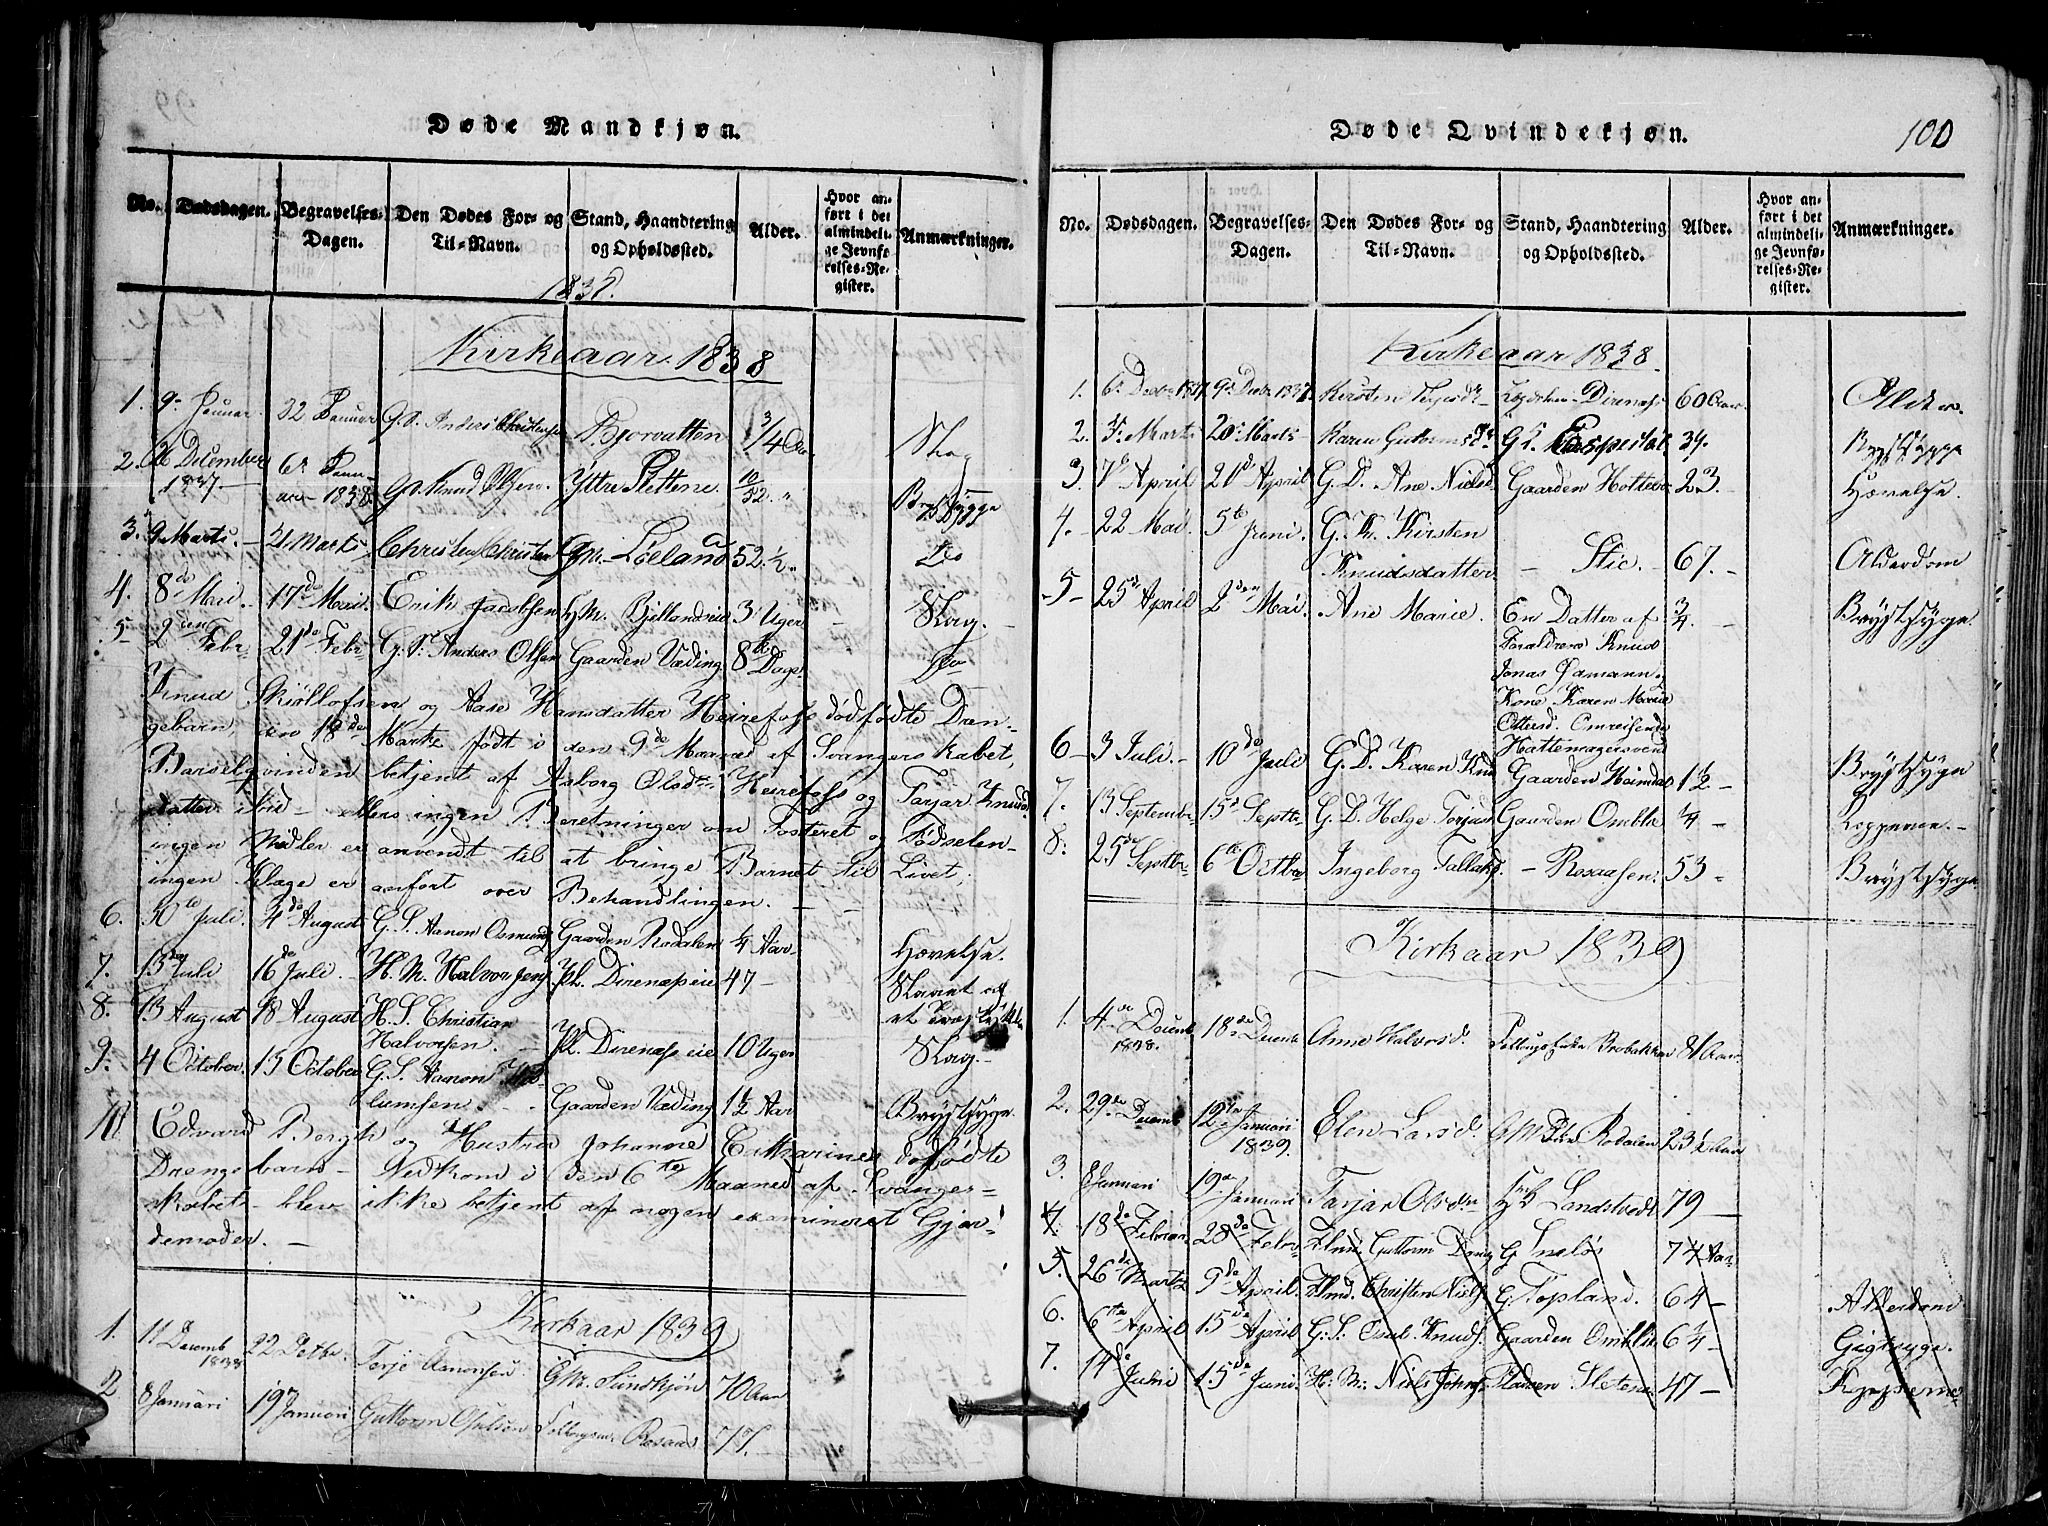 Døde Mandkjøn.
No. Dødsdagen. Begravelses-Dagen. Den Dødes For- og Til-Navn. Stand, Haandtering og Opholdssted. Alder. Hvor anført i det almindelige Jevnførelses-Register. Anmærkninger.
1838.
Kirkeaar 1838
1. 9 Januar. 22 Januar G. S. Anders Christensen Bjorvatten 3/4
2. 26 December 1837. 6 Januar 1838 G. S. Knud Ytre Slettene 10/52 Brystsyge
3. 9 Marts. 21 Marts Christen Christens. Gm. Löeland 52 1/2 Do
4. 8de Mai. 17de Mai. Erik Jacobsen H.M. Bjellandseie 3 Uger Slag.
5 2den Febr. 21de Febr. G. S. Anders Olsen Gaarden Væding 8te Dage Do
Knud Skiöllofsen og Aase Hansdatter Heirefoss dödfödte Dren-
gebarn, den 18de Martz födt i den 9de Maaned af Svangerskabet,
Barselqvinden betjent af Aasborg Olsdtr Heirefoss og Tarjer Knuds
datter ibid - Ellers ingen Beretninger om Fosteret og Födselen-
ingen Midler er anvendt til at bringe Barnet til Livet;
ingen Klage er anfört over Behandlingen.
6. 30te Juli. 4de August G. S. Aanon Osmunds Gaarden Rodalen 1/4 Aar Hævelse.
7. 13 Juli 16de Juli. H. M. Halvor Jens Pl. Direnæseie 47
8. 13 August 18 August H. S. Christian Halvorsen. Pl. Direnæseie 10 Uger Slag.
9. 4 October. 15 October G. S. Aanon Gaarden Væding 1 1/2 Aar Brystsyge
10 Edvard Bergh og Hustru Johanne Cathrines dödfödte
Drengebarn - Nedkom i den 6te Maaned af Svanger-
skabet - blev ikke betjent af nogen examineret Gjor-
demoder.
Kirkaar 1839
1. 11 Decemb 1838 22 Terje Aanonsen Gm. Sundkjön 70 Aar
2 8 Januari 19 Januari Guttorm Rosaas 77.
Døde Qvindekjøn. 100
No. Dødsdagen. Begravelses-Dagen. Den Dødes For- og Til-Navn. Stand, Haandtering og Opholdssted. Alder. Hvor anført i det almindelige Jevnførelses-Register. Anmærkninger.
Kirkeaar 1838.
1. 6 Decbr 1837 9 Decbr 1837. Kirsten Direnæs 60 Aar. Alder.
2. Marts 20 Marts Karen Guttormsdr Espestøl 39. Brystsyge
3. 7de April 21de April G. D. Ane Nielsd Gaarden Holte 23. Hævelse.
4. 22 Mai 5te Juni. G. K. Kirsten Knudsdatter - Stie. - 67. - Alderdom
5 - 25de April 2den Mai Ane Marie. En Datter af 3/4. Brystsyge.
Foræld­rene Knud
Jonas Hamann.
Kone Karen Marie
Ottersd. Omreisende
Hattemagersvend
6 - 3 Juli. - 10de Juli G. D. Karen Knud Gaarden Heimdal 1 1/2 - Brystsyge
7. 13 September 15de Septbr G. D. Helge Torjus Gaarden Omblie 1/4 - Kopperne. -
8. 25de Septbr 6te Octbr Ingeborg Tallaks. - Rosaasen. 53 - Brystsyge
Kirkaar 1839
1. 4de Decmb 1838. 18de Decmb Anne Halvorsd. Brobakken Aar
2. 29de Decemb 12te Januari 1839. Elen Larsd. Rodalen 23 1/2 Aar
3. 8 Januari 19de Januari Tarjer Olsdtr Landstvedt 79 -
4. 18de Februar 28de Febr Guttorm G. 74 Aar
5. 26de Martz 9de April Christen Niels G. Topland. 64 - Alderdom
6. 6te April 15de April G. S. Omul Knuds. Gaarden Omblie 6 1/4 - Gigtsyge.
7. 14de Juni 15de Juni. H. M. Niels Johns Pladsen Sletene 47 -